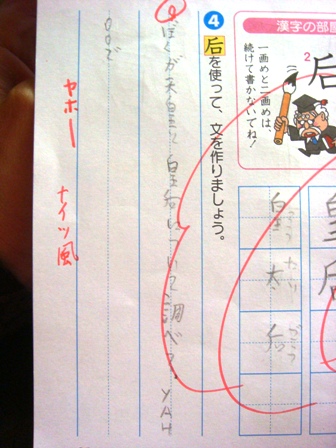 漢字の部
2
后
一画めと二画めは、
続けて書かないでね!
皇后
皇太后
4
后を使って、文を作りましょう。
ぼくが天皇と皇后について、調べた。YAH
OOで
ヤホー
ナイツ風